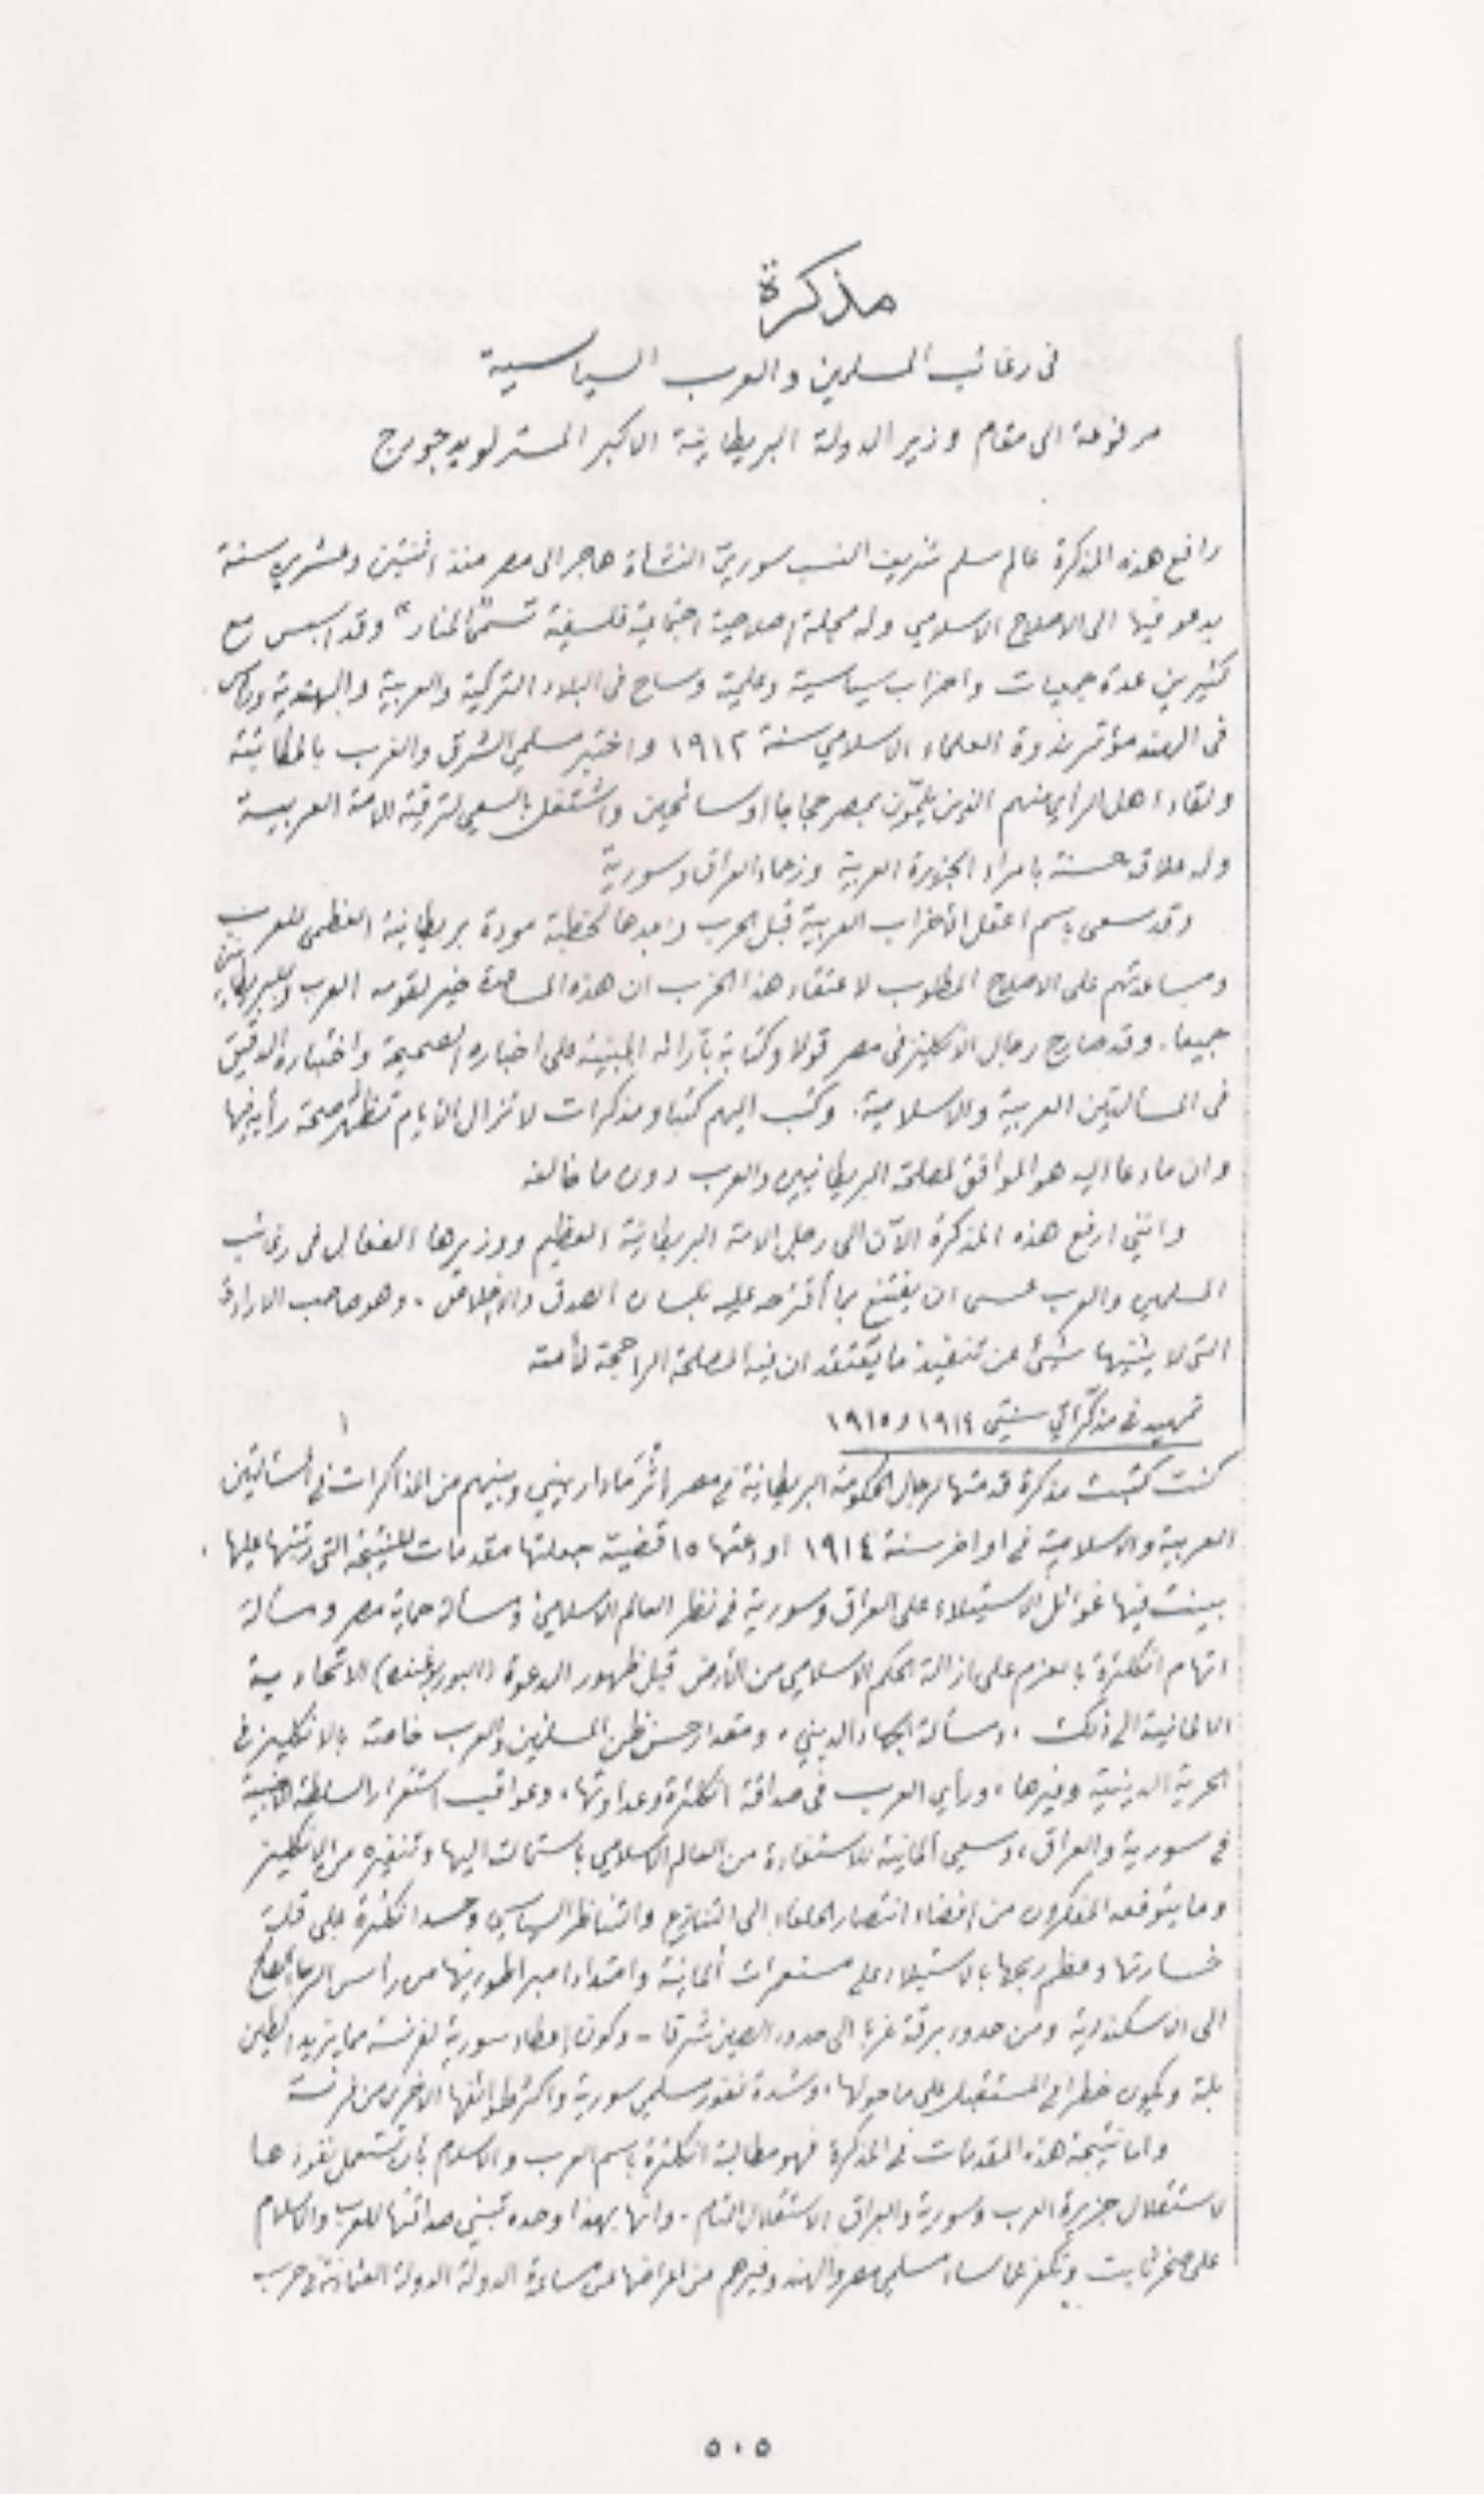 مذكرة
في رغائب المسلمين والعرب السياسية
مرفوعة الى مقام وزير الدولة البريطانية الاكبر المستر لويد جورج
رافع هذه المذكرة عالم مسلم شريف النسب سوريّ النشأة هاجر الى مصر منذ اثنتين وعشرين سنة
يدعو فيها الى الاصلاح الاسلامي وله مجلة اصلاحية اجتماعية فلسفية تسمّى "المنار" وقد اسس مع
كثيرين عدة جمعيات واحزاب سياسية وعلمية وساح في البلاد التركية والعربية والهندية ورأس
في الهند مؤتمر ندوة العلماء الاسلامي سنة ١٩١٢ واختبر مسلمي الشرق والغرب بالمكاتبة
ولقاء اهل الرأي منهم الذين يلمّون بمصر حجاجا او سائحين واشتغل بالسعي لترقية الامة العربية
وله علاقة حسنة بامراء الجزيرة العربية وزعماء العراق وسورية
وقد سعى باسم اعقل الأحزاب العربية قبل الحرب وبعدها لخطبة مودة بريطانية العظمى للعرب
ومساعدتهم على الاصلاح المطلوب لاعتقاد هذا الحزب ان هذه المساعدة خير لقومه العرب وللبريطانيين
جميعا. وقد صارح رجال الانكليز في مصر قولا وكتابة بآرائه المبنية على اخباره الصحيحة واختباره الدقيق
في المسألتين العربية والاسلامية. وكتب اليهم كتبا ومذكرات لا تزال الأيام تظهر صحة رأيه فيها
وان ما دعا اليه هو الموافق لمصلحة البريطانيين والعرب دون ما خالفه
وانني ارفع هذه المذكرة الآن الى رجل الامة البريطانية العظيم ووزيرها الفعال في رغائب
المسلمين والعرب عسى ان يقتنع بما أقترحه عليه بلسان الصدق والاخلاص. وهو صاحب الارادة
التي لا يثنيها شيئ عن تنفيذ ما يعتقد ان فيه المصلحة الراجحة لأمته
تمهيد في مذكراتي سنتي ١٩١٤ و١٩١٥
١
كنت كتبت مذكرة قدمتها لرجال الحكومة البريطانية في مصر إثر ما دار بيني وبينهم من المذاكرات في المسألتين
العربية والاسلامية في اواخر سنة ١٩١٤ اودعتها ١٥ قضية جعلتها مقدمات للنتيجة التي رتبتها عليها
بينت فيها غوائل الاستيلاء على العراق وسورية في نظر العالم الاسلامي ومسألة حماية مصر ومسألة
اتهام انكلترة بالعزم على ازالة الحكم الاسلامي من الأرض قبل ظهور الدعوة (البوربغنده) الاتحادية
الالمانية الى ذلك، ومسألة الجهاد الديني، ومقدار حسن ظن المسلمين والعرب خاصة بالانكليز في
الحرية الدينية وغيرها، ورأي العرب في صداقة انكلترة وعداوتها، وعواقب استقرار السلطة الاجنبية
في سورية والعراق، وسعي ألمانية للاستفادة من العالم الاسلامي باستمالته اليها وتنفيره من الانكليز
وما يتوقعه المفكرون من إفضاء انتصار الحلفاء الى التنازع والتناظر السياسي وحسد انكلترة على قلة
خسارتها وعظم ربحها بالاستيلاء على مستعمرات ألمانية وامتداد امبراطوريتها من رأس الرجاء الصالح
الى الاسكندرية ومن حدود برقة غربا الى حدود الصين شرقا - وكون إعطاء سورية لفرنسة مما يزيد الطين
بلة ويكون خطرا في المستقبل على ما حولها، وشدة نفور مسلمي سورية واكثر طوائفها الاخرى من فرنسة
واما نتيجة هذه المقدمات في المذكرة فهو مطالبة انكلترة باسم العرب والاسلام بأن تستعمل نفوذها
لاستقلال جزيرة العرب وسورية والعراق الاستقلال التام. وانها بهذا وحده تبني صداقتها للعرب والاسلام
على صخر ثابت وتكفر عما ساء مسلمي مصر والهند وغيرهم من الدولة العثمانية في حرب
٥٠٥